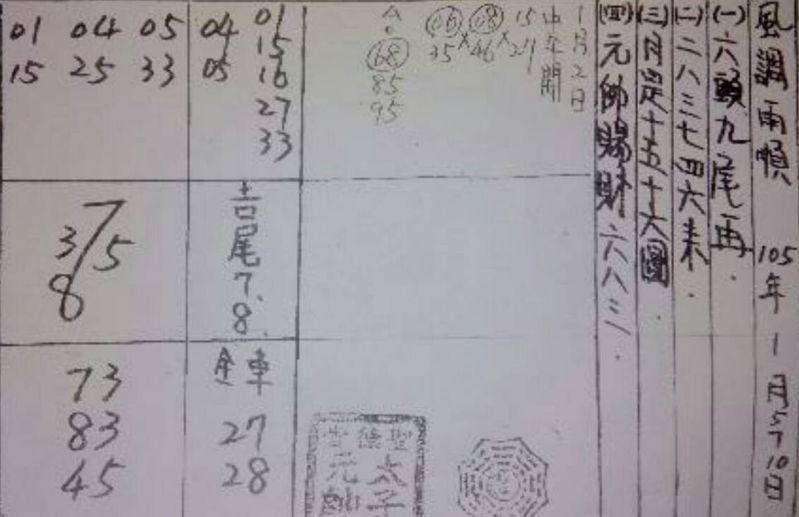 風調雨順 105年1月5710日
(一)六頭九尾再.
(二)二八三七四六来.
(三)月是十五十六圓.
(四)元帥賜財六八三.
1月2日
中午開
15 08 06
27×46×35
A.
68
85
95
01
04 15
05 16
27
33
01 04 05
15 25 33
吉尾7.8.
7
3/5
8
全車
27
28
73
83
45
聖德宮
太子元帥